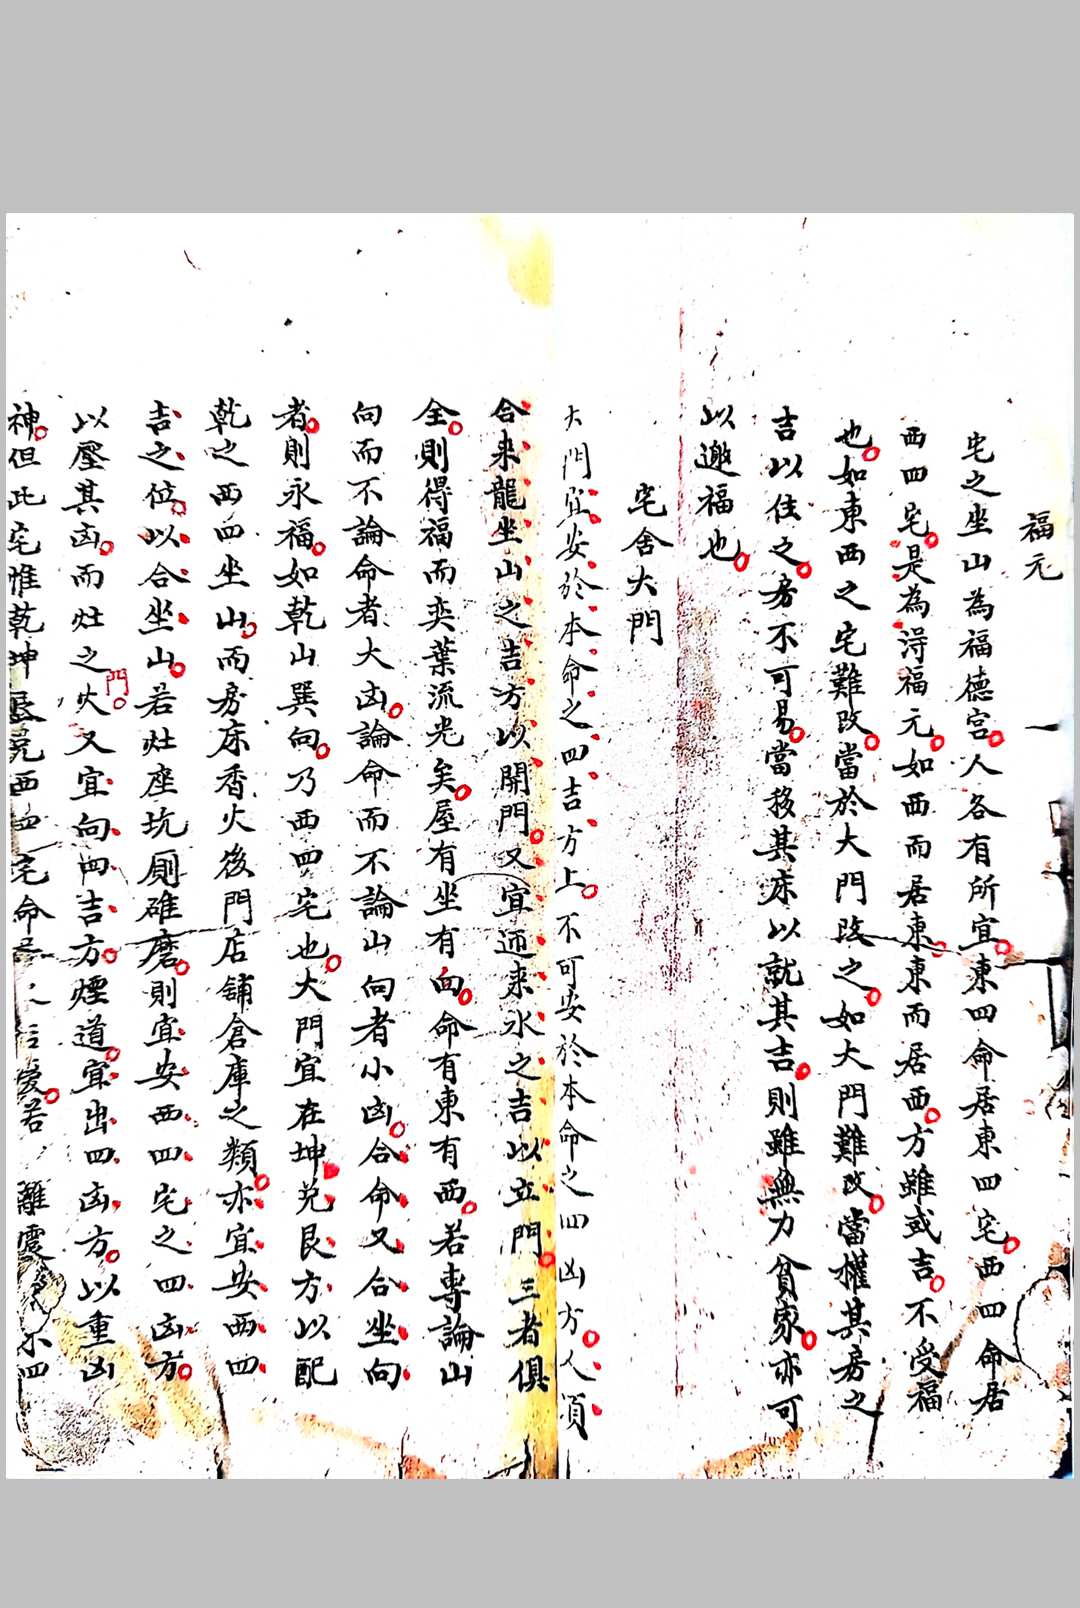 福元
宅之坐山為福德宫人各有所宜東四命居東四宅西四命居
西四宅是為淂福元如西而居東東而居西方雖或吉不受福
也如東西之宅難改當於大門改之如大門難改當權其房之
吉以住之房不可易當移其床以就其吉則雖無力貧家亦可
以邀福也
宅舍大門
大門宜安於本命之四吉方上不可安於本命之四凶方人須
合来龍坐山之吉方以開門又宜迊来水之吉以立門三者俱
全則得福而奕葉流光矣屋有坐有向命有東有西若專論山
向而不論命者大凶論命而不論山向者小凶合命又合坐向
者則永福如乾山巽向乃西四宅也大門宜在坤兑艮方以配
乾之西四坐山而房床香火後門店舖倉庫之類亦宜安西四
吉之位以合坐山若灶座坑厠碓磨則宜安西四宅之四凶方
以壓其凶而灶之火門又宜向四吉方煙道宜出四凶方以重凶
神但此宅惟乾坤艮兑西四宅命愛若離震四